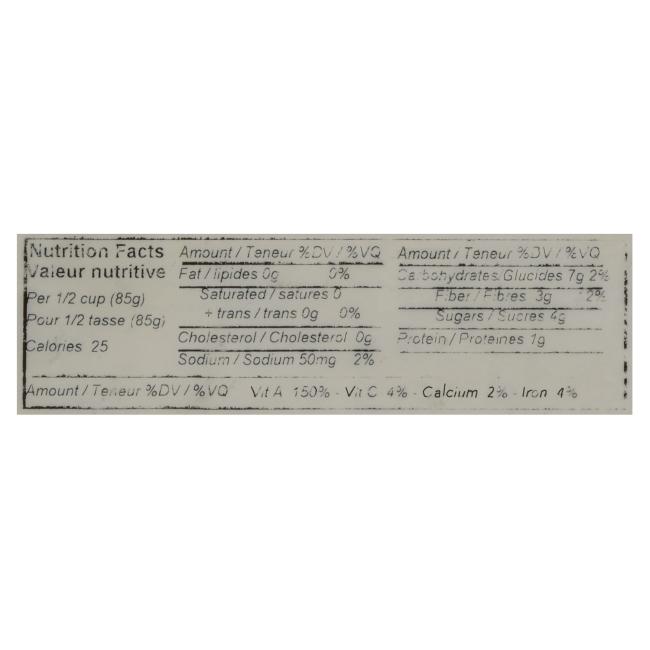 Nutrition Facts
Valeur nutritive
Per 1/2 cup (85g)
Pour 1/2 tasse (85g)
Calories 25
Amount / Teneur %DV / %VQ
Fat / lipides 0g 0%
Saturated / satures 0
+ trans / trans 0g 0%
Cholesterol / Cholesterol 0g
Sodium / Sodium 50mg 2%
Amount / Teneur %DV / %VQ
Carbohydrates/Glucides 7g 2%
Fiber / Fibres 3g 2%
Sugars / Sucres 4g
Protein / Proteines 1g
Amount / Teneur %DV / %VQ Vit A 150% - Vit C 4% - Calcium 2% - Iron 4%